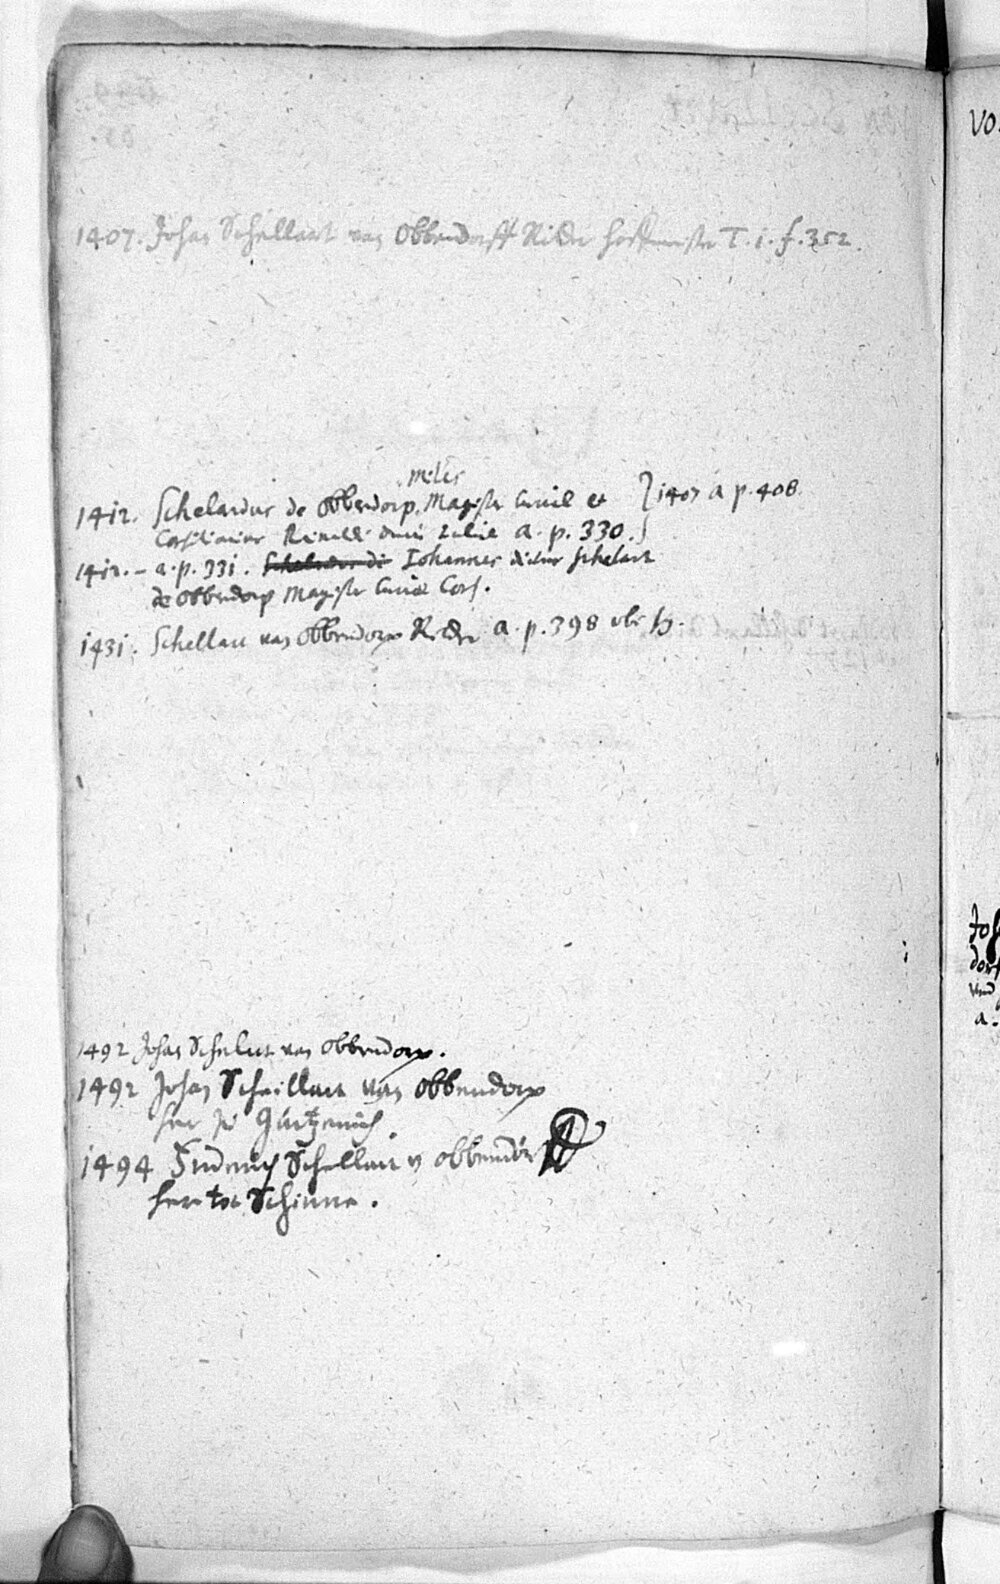 1407. Johan Schellart van Obbendorff Ridder hoffmeister T. i. f. 352.
miles
1412. Schelardus de Obbendorp, Magister Curiæ et } 1407 a p. 408.
Consiliarius Reinaldi ducis Juliæ a. p. 330.
1412. - a. p. 331. Schelardus de Iohannes dictus schelart
de Obbendorp Magister Curiæ Cons.
1431. Schellart van Obbendorp Ridder a. p. 398
1492 Johan Schelart van Obbendorp.
1492 Johan Scheillart van Obbendorp
her zu Gurtzenich
1494 Frideric Schellart v Obbendorp
her tot Schinne.
VO
Joh
dorf
vnd
a.